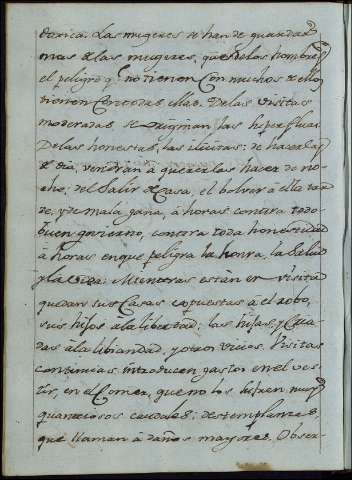 darica. Las mugeres se han de guardar
mas de las mugeres, que de los hombres
el peligro q̃ no tienen con muchos de ellos
tienen con todas ellas. De las visitas
moderadas se originan las superfluas.
De las honestas, las ilicitas: de hacerlas
de dia, vendràn à quererlas hacer de no-
che, del salir de casa, el bolver à ella tar
de, y de mala gana, à horas contra todo
buen govierno, contra toda honestidad
à horas en que peligra la honra, la salud
y la vida. Mientras estàn en visita
quedan sus Casas expuestas à el robo,
sus hijos à la libertad; las hijas, y Cria
das à la liviandad, y otros vicios. Visitas
continuas, introducen gastos en el ves-
tir, en el Comer, que no los sufren muy
quantiosos caudales; destemplanzas,
que llaman à daños mayores. Obser-